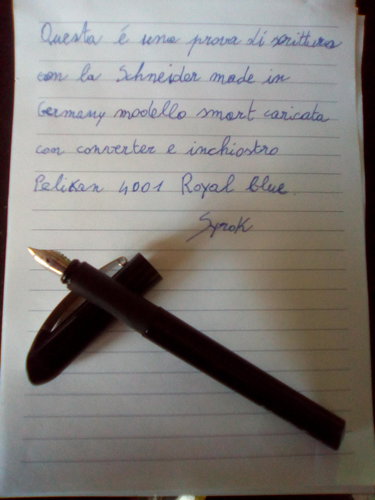 Questa é una prova di scrittura
con la Schneider made in
Germany modello smart caricata
con converter e inchiostro
Pelikan 4001 Royal blue.
Syrok